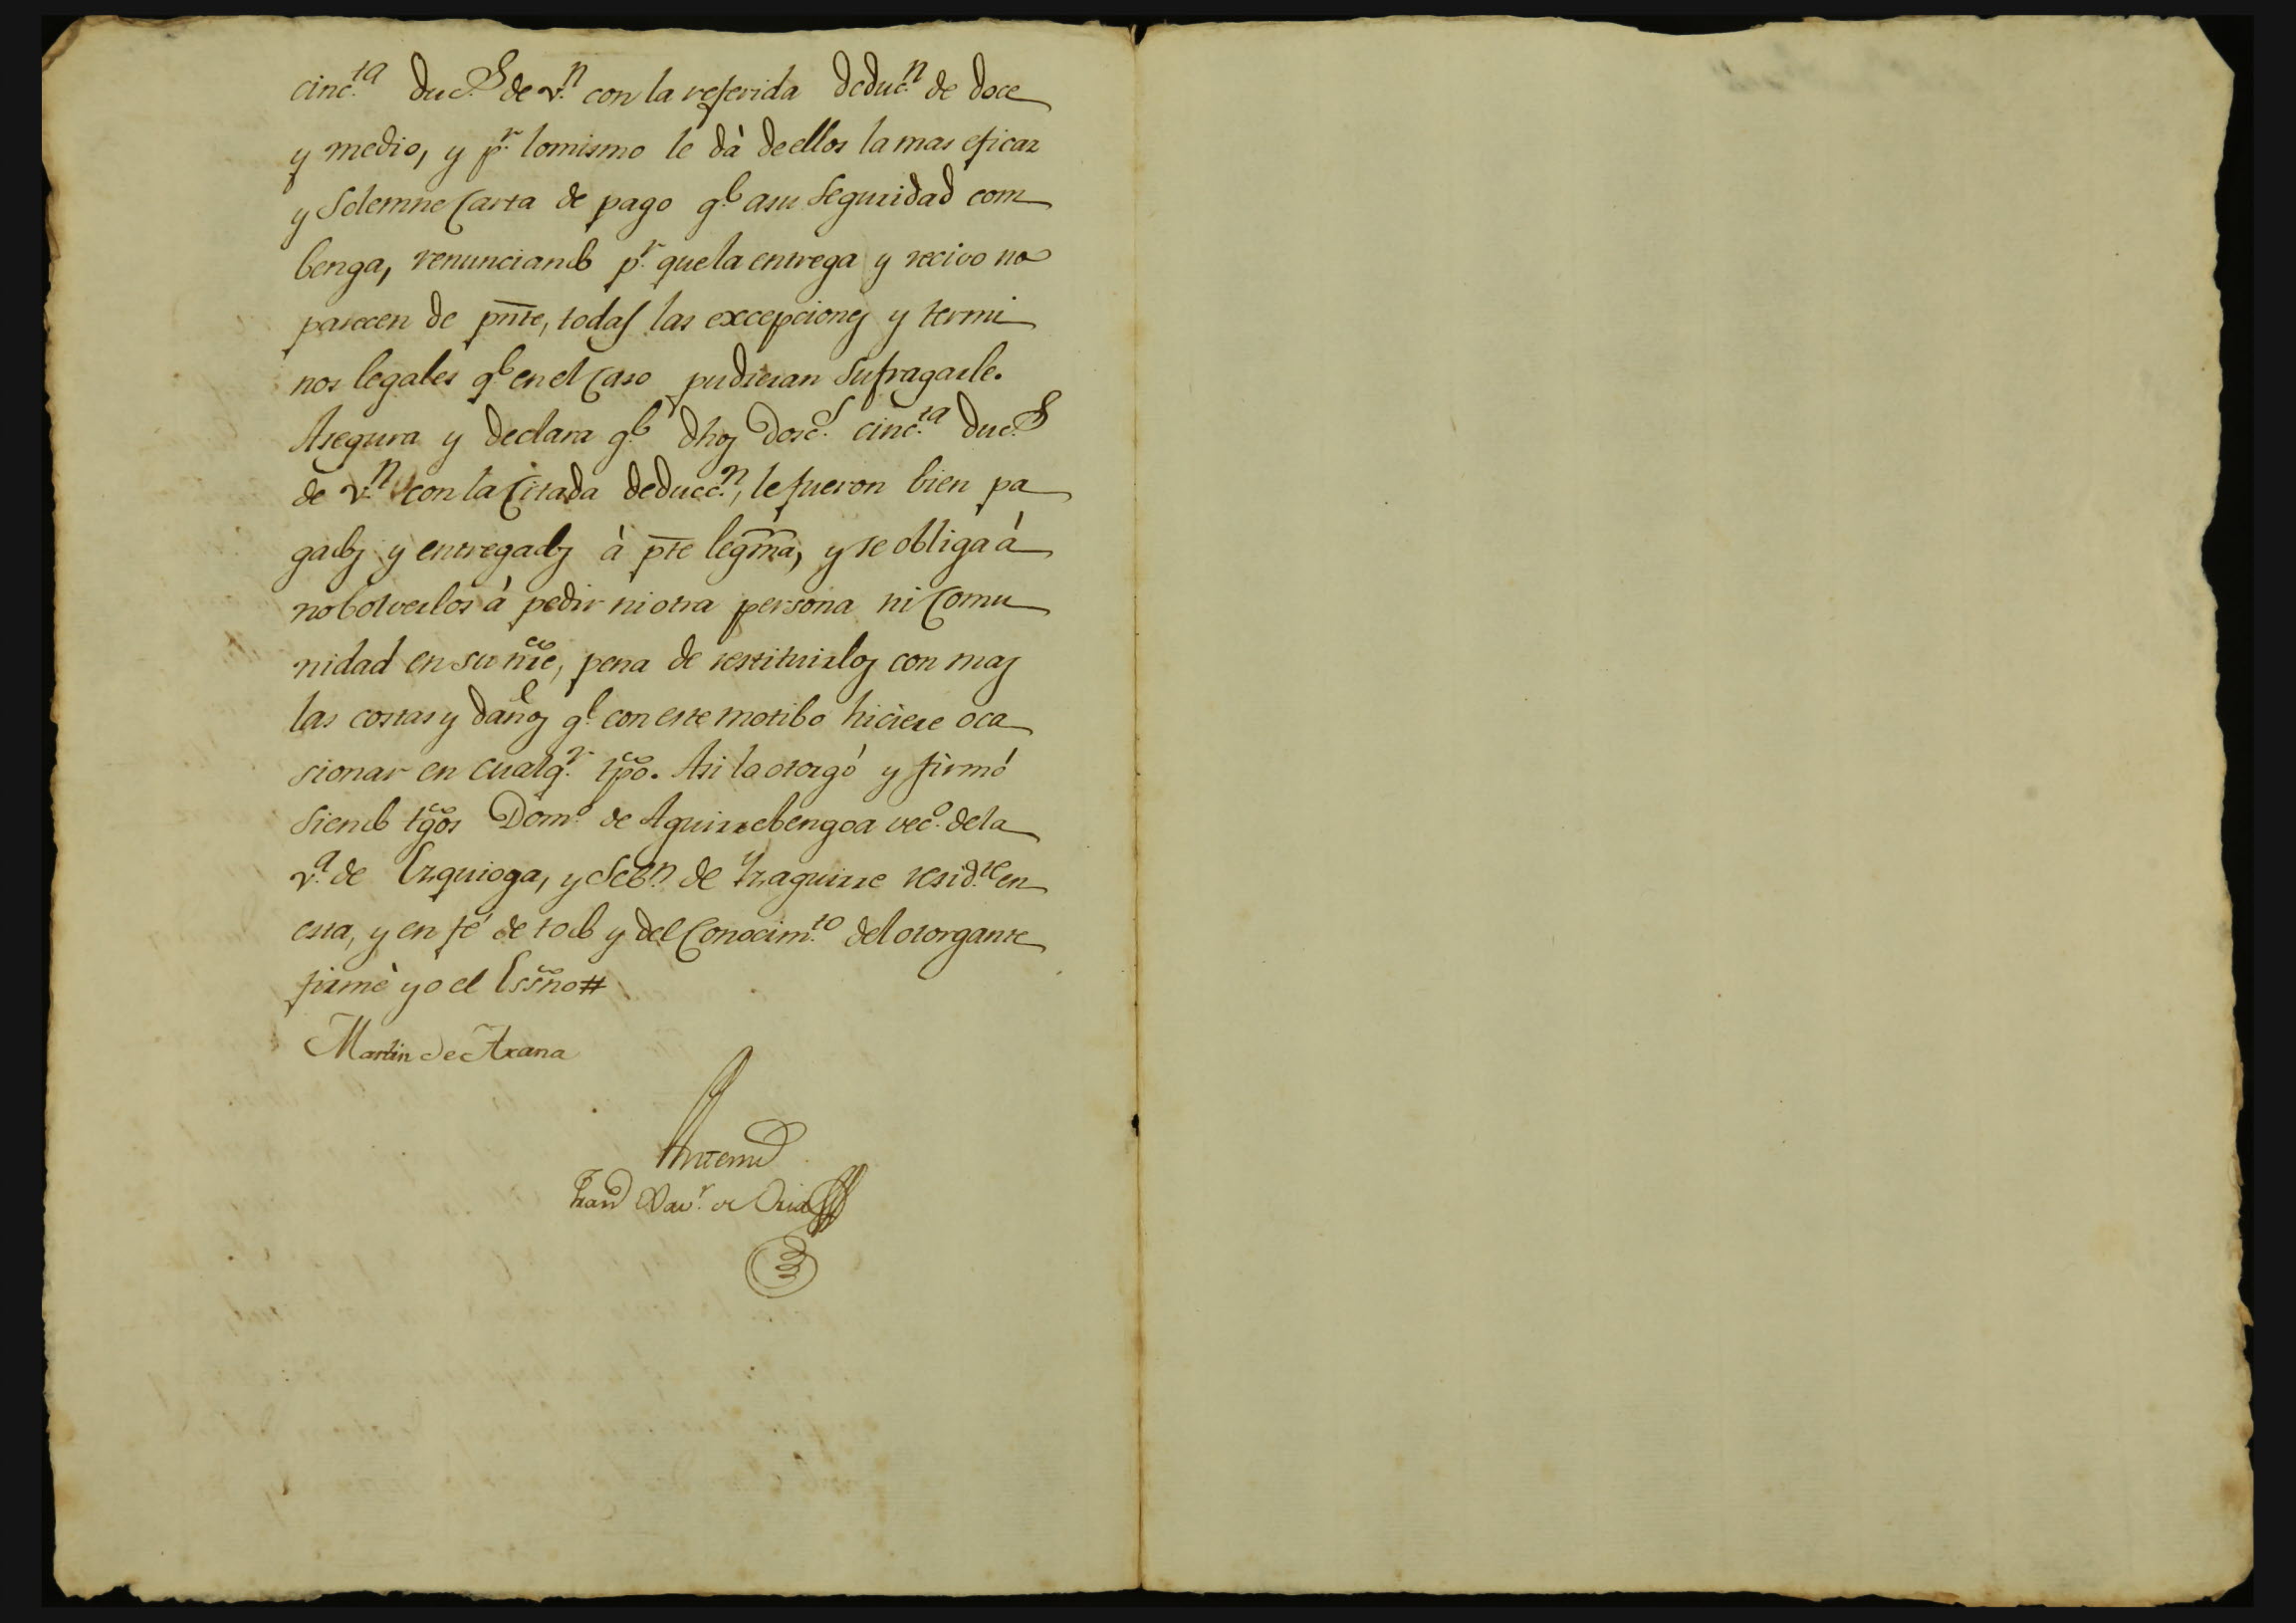 cinc.ta duc.s de v.n con la referida deduc.n de doce
y medio, y p.r lomismo le dà deellos la mas eficaz
y Solemne Carta de pago q.e asu Seguridad com
benga, renunciando p.r quela entrega y recivo no
parecen de pnte, todas las excepciones y termi
nos legales q.e en el Caso pudieran Sufragarle.
Asegura y declara q.e dhos dosc.s cinc.ta duc.s
de v.n con la Citada deducc.n, le fueron bien pa
gados y entregados à pte legma, y se obliga á
no bolverlos à pedir ni otra persona ni Comu
nidad en su nre, pena de restituirlos con mas
las costas y daños q.e con este motibo hiciere oca
sionar en cualq.r tpo. Asi la otorgó y firmó
Siendo tgos Dom.o de Aguirrebengoa vec.o de la
v.a de Ezquioga, y Seb.n de Yzaguirre resid.te en
esta, y en fé de todo y del Conocim.to del otorgante
firmè yo el Essno #
Martin de Arana
Antemi
Fran.co Xav.r de Oria